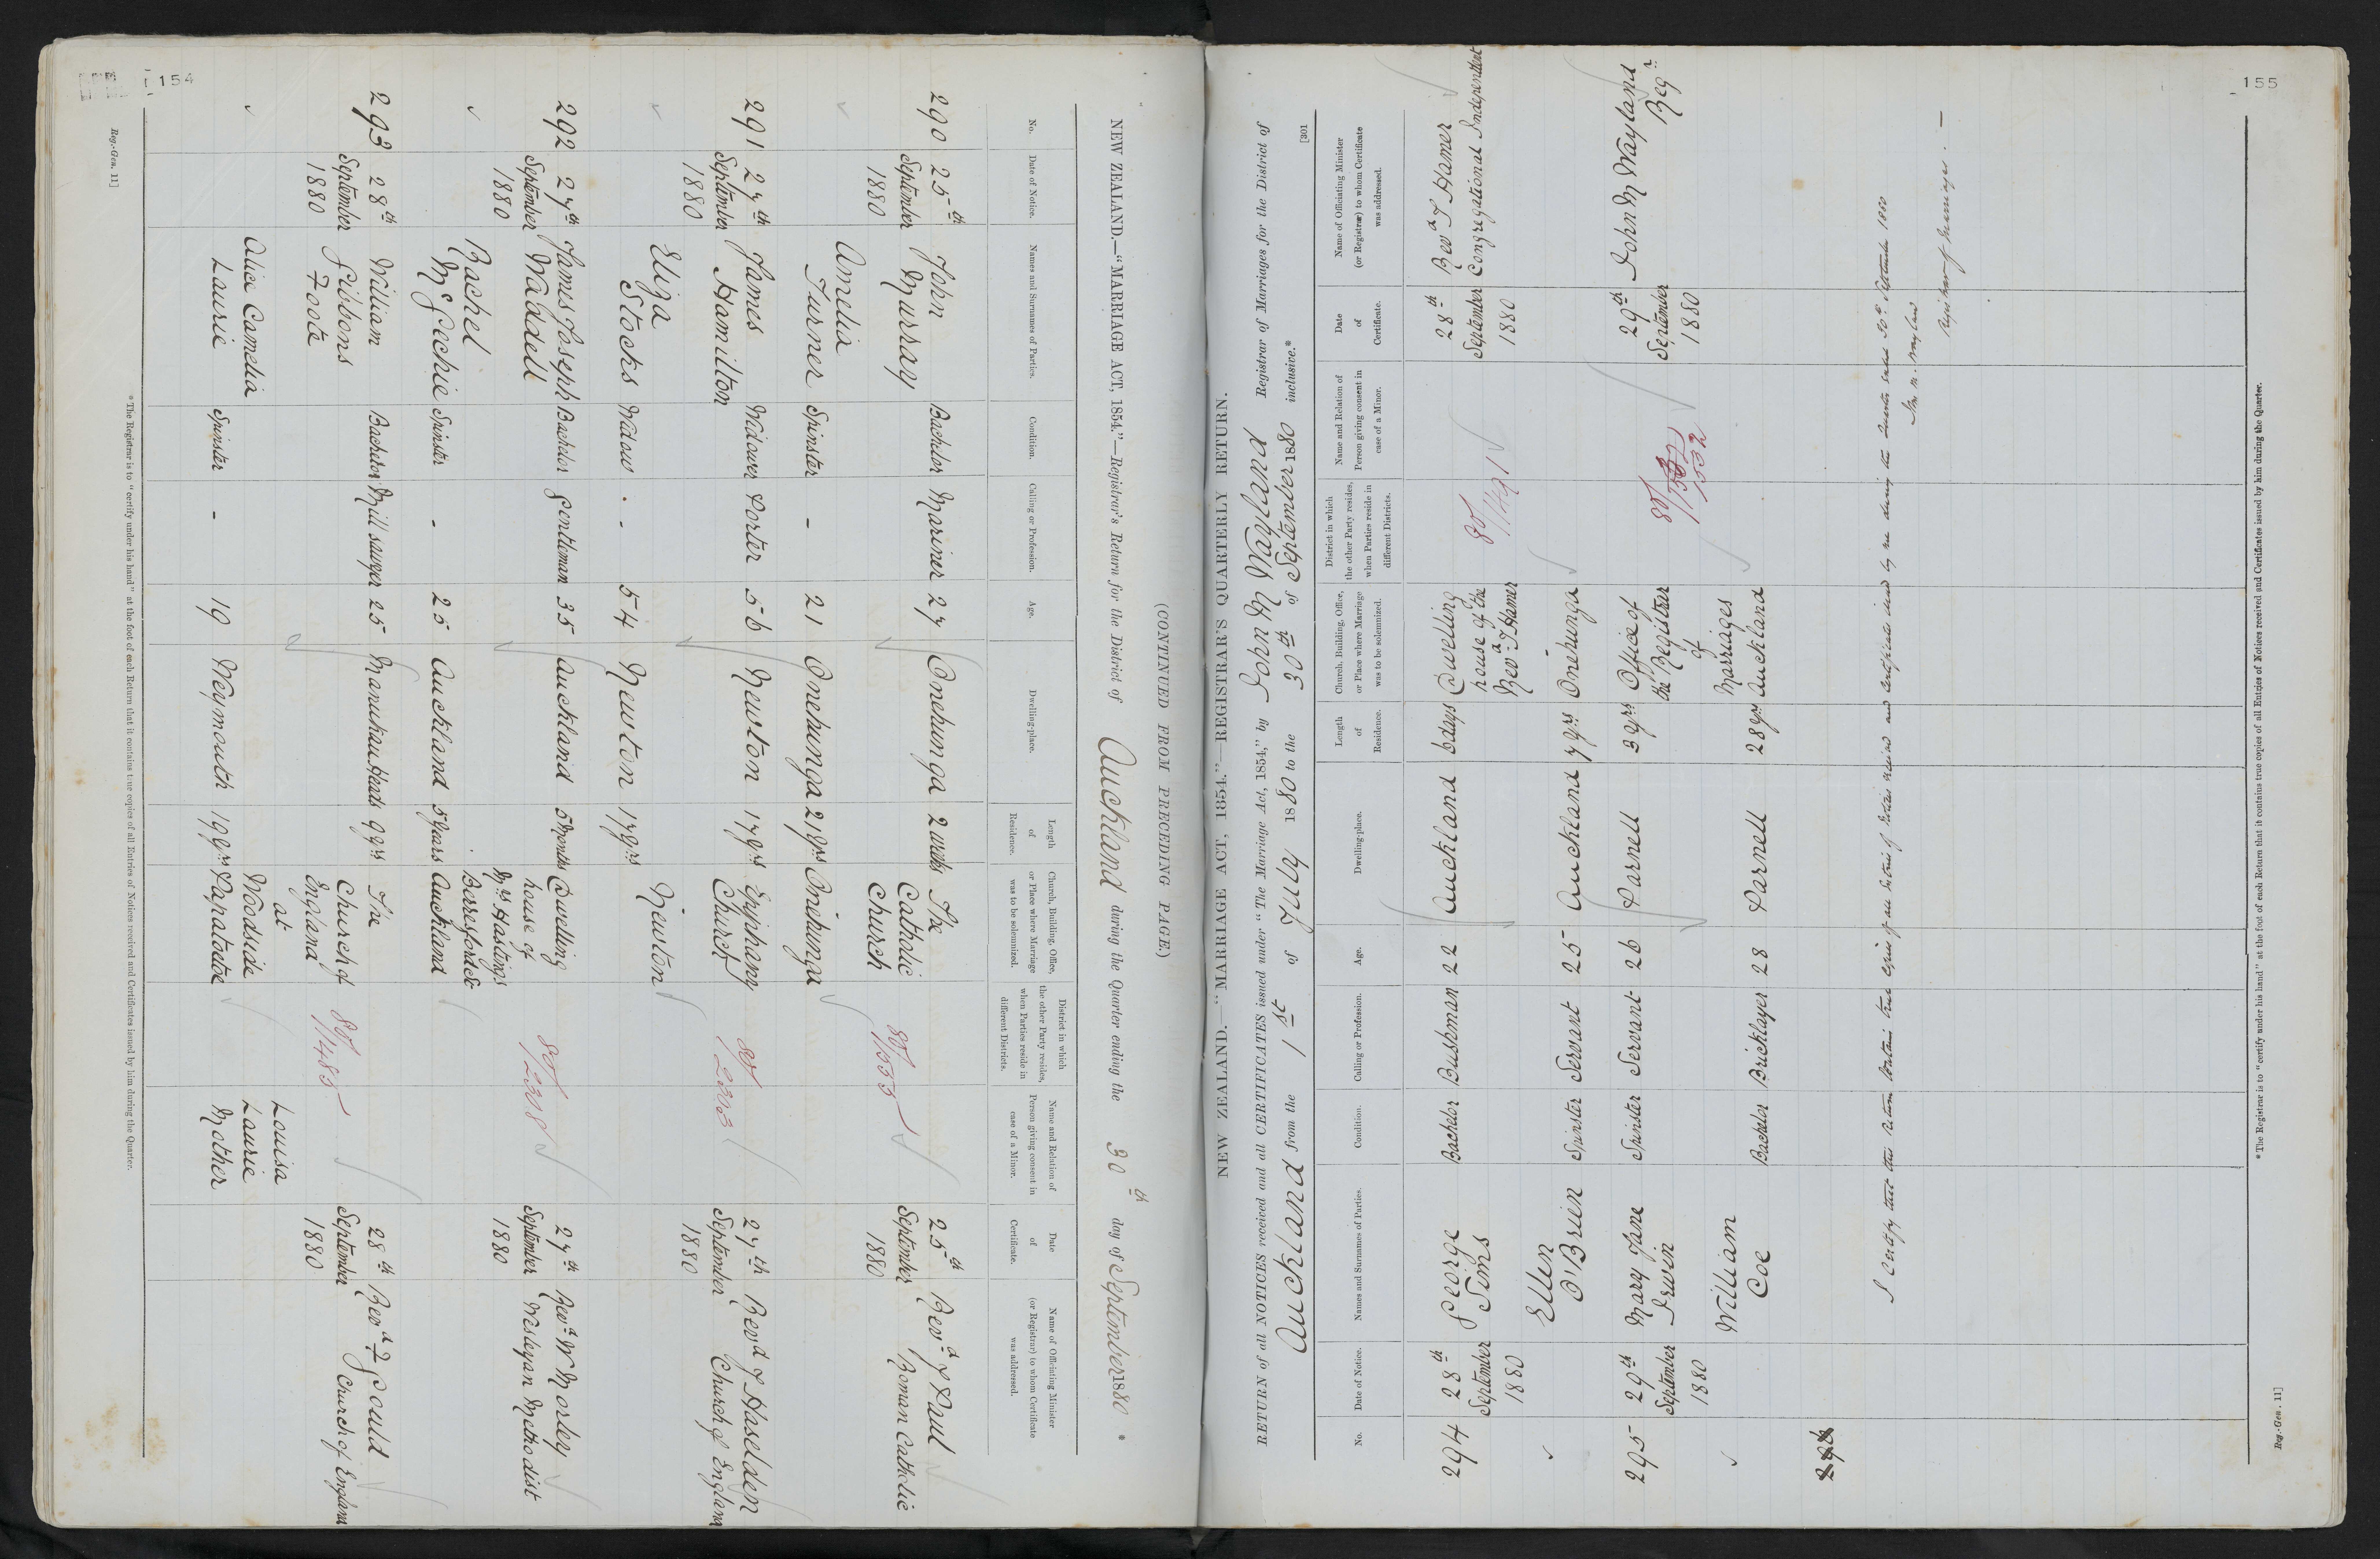 154
(CONTINUED FROM PRECEDING PAGE.)
NEW ZEALAND.—"MARRIAGE ACT, 1854."—Registrar's Return for the District of Auckland during the Quarter ending the 30th day of September 1880 *
No.
Date of Notice.
Names and Surnames of Parties.
Condition.
Calling or Profession.
Age.
Dwelling-place.
Length of Residence.
Church, Building, Office, or Place where Marriage was to be solemnized.
District in which the other Party resides, when Parties reside in different Districts.
Name and Relation of Person giving consent in case of a Minor.
Date of Certificate.
Name of Officiating Minister (or Registrar) to whom Certificate was addressed.
290
25th September 1880
John Murray
Bachelor
Mariner
27
Onehunga
2 weeks
The Catholic Church
80/1535
25th September 1880
Revd J Paul Roman Catholic
Amelia Turner
Spinster
-
21
Onehunga
21 yrs
Onehunga
291
27th September 1880
James Hamilton
Widower
Porter
56
Newton
17 yrs
Epiphany Church
80/2303
27th September 1880
Revd J Haselden Church of England
Eliza Stocks
Widow
-
54
Newton
17 yrs
Newton
292
27th September 1880
James Joseph Waddell
Bachelor
Gentleman
35
Auckland
5 Months
Dwelling house of Mrs Hastings Beresford St
80/2308
27th September 1880
Revd W Morley Wesleyan Methodist
Rachel McGechie
Spinster
-
25
Auckland
5 years
Auckland
293
28th September 1880
William Gibbons Foote
Bachelor
Mill sawyer
25
Manukau Heads
9 yrs
The Church of England at Woodside
80/1485
28th September 1880
Revd F Gould Church of England
Alice Camelia Laurie
Spinster
-
19
Weymouth
19 yrs
Papatoetoe
Louisa Laurie Mother
* The Registrar is to "certify under his hand" at the foot of each Return that it contains true copies of all Entries of Notices received and Certificates issued by him during the Quarter.
Reg.-Gen. 11]
155
[301
NEW ZEALAND.—"MARRIAGE ACT, 1854."—REGISTRAR'S QUARTERLY RETURN.
RETURN of all NOTICES received and all CERTIFICATES issued under "The Marriage Act, 1854," by John M Wayland Registrar of Marriages for the District of
Auckland from the 1st of July 1880 to the 30th of September 1880 inclusive.*
No.
Date of Notice.
Names and Surnames of Parties.
Condition.
Calling or Profession.
Age.
Dwelling-place.
Length of Residence.
Church, Building, Office, or Place where Marriage was to be solemnized.
District in which the other Party resides, when Parties reside in different Districts.
Name and Relation of Person giving consent in case of a Minor.
Date of Certificate.
Name of Officiating Minister (or Registrar) to whom Certificate was addressed.
294
28th September 1880
George Sims
Bachelor
Bushman
22
Auckland
6 days
Dwelling house of the Revd T Hamer
80/1491
28th September 1880
Revd T Hamer Congregational Independent
Ellen O'Brien
Spinster
Servant
25
Auckland
7 yrs
Onehunga
295
29th September 1880
Mary Jane Irwin
Spinster
Servant
26
Parnell
3 yrs
Office of the Registrar of Marriages
80/
1532
29th September 1880
John M Wayland Regr
William Coe
Bachelor
Bricklayer
28
Parnell
28 yrs
Auckland
296
I certify that this return contains true copies of all entries of notices received and certificates issued by me during the quarter ended 30th September 1880
Jno M. Wayland
Registrar of Marriages.—
* The Registrar is to "certify under his hand" at the foot of each Return that it contains true copies of all Entries of Notices received and Certificates issued by him during the Quarter.
Reg.-Gen. 11]